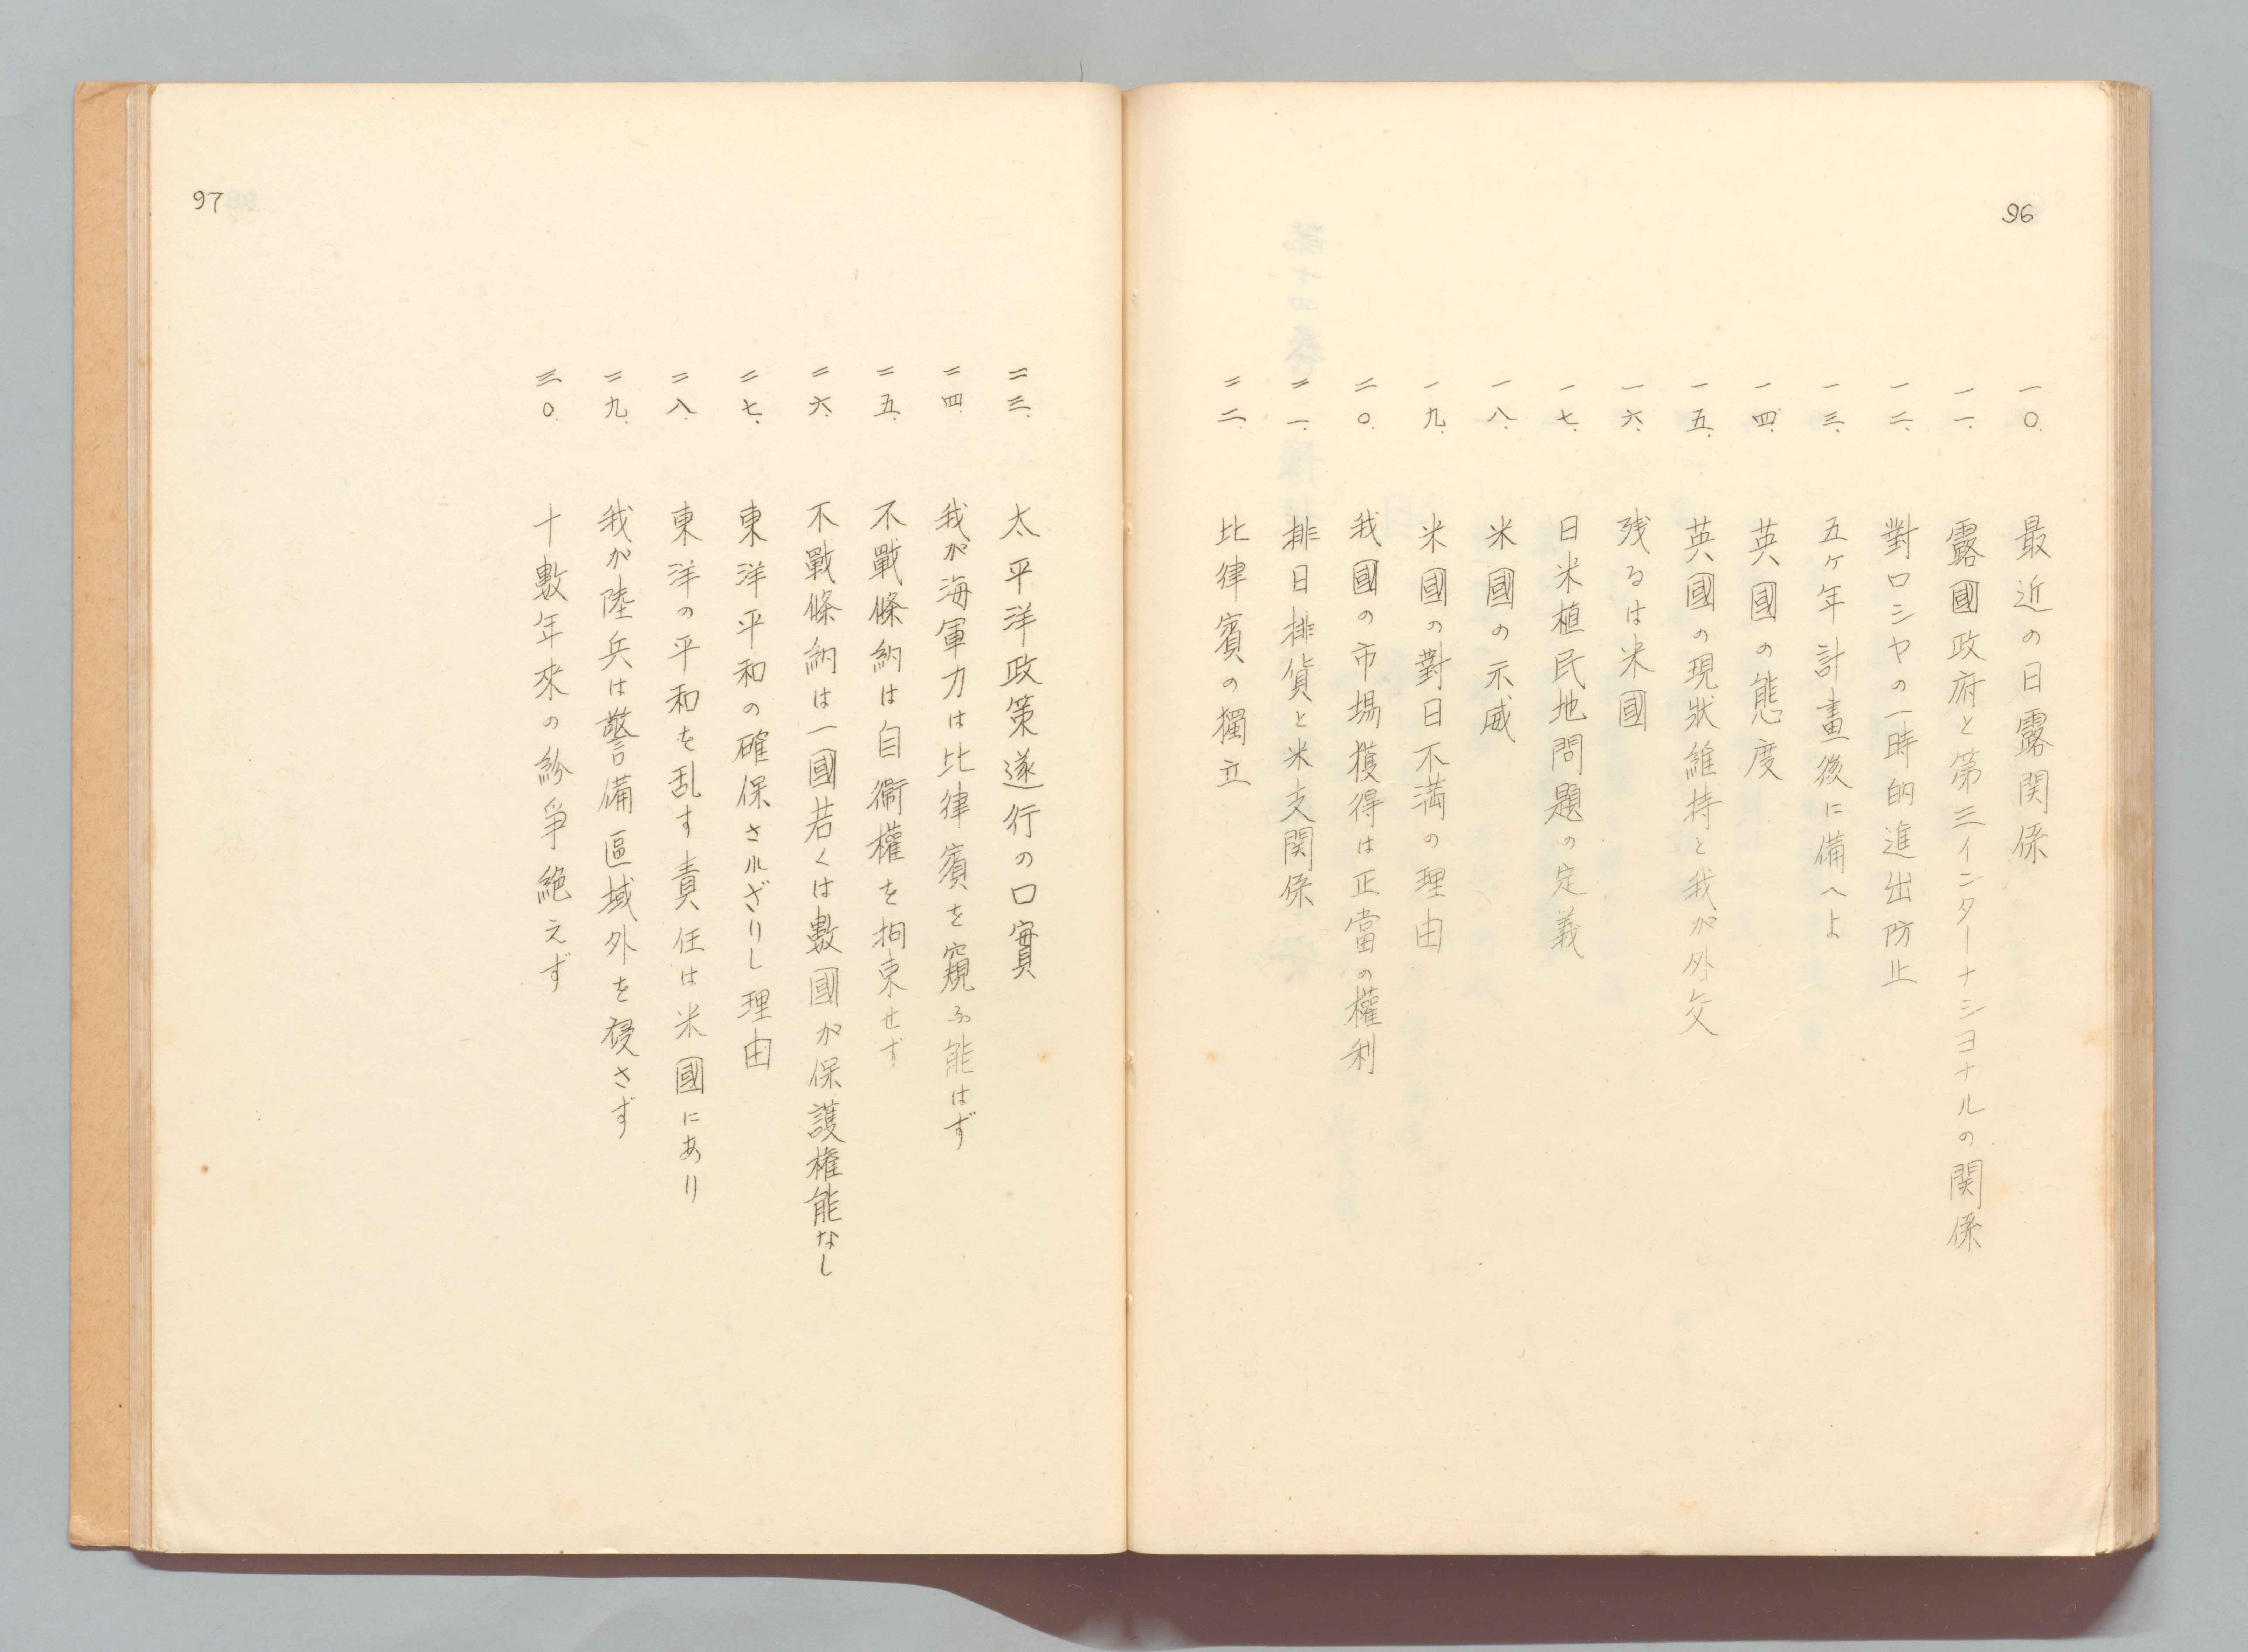 96
一〇. 最近の日露関係
一一. 露國政府と第三インターナシヨナルの関係
一二. 對ロシヤの一時的進出防止
一三. 五ヶ年計畫後に備へよ
一四. 英國の態度
一五. 英國の現狀維持と我が外交
一六. 残るは米國
一七. 日米植民地問題の定義
一八. 米國の示威
一九. 米國の對日不満の理由
二〇. 我國の市場獲得は正當の權利
二一. 排日排貨と米支関係
二二. 比律賓の獨立
97
二三. 太平洋政策遂行の口實
二四. 我が海軍力は比律賓を窺ふ能はず
二五. 不戰條約は自衞權を拘束せず
二六. 不戰條約は一國若くは數國が保護権能なし
二七. 東洋平和の確保されざりし理由
二八. 東洋の平和を乱す責任は米國にあり
二九. 我が陸兵は警備區域外を侵さず
三〇. 十數年來の紛爭絶えず